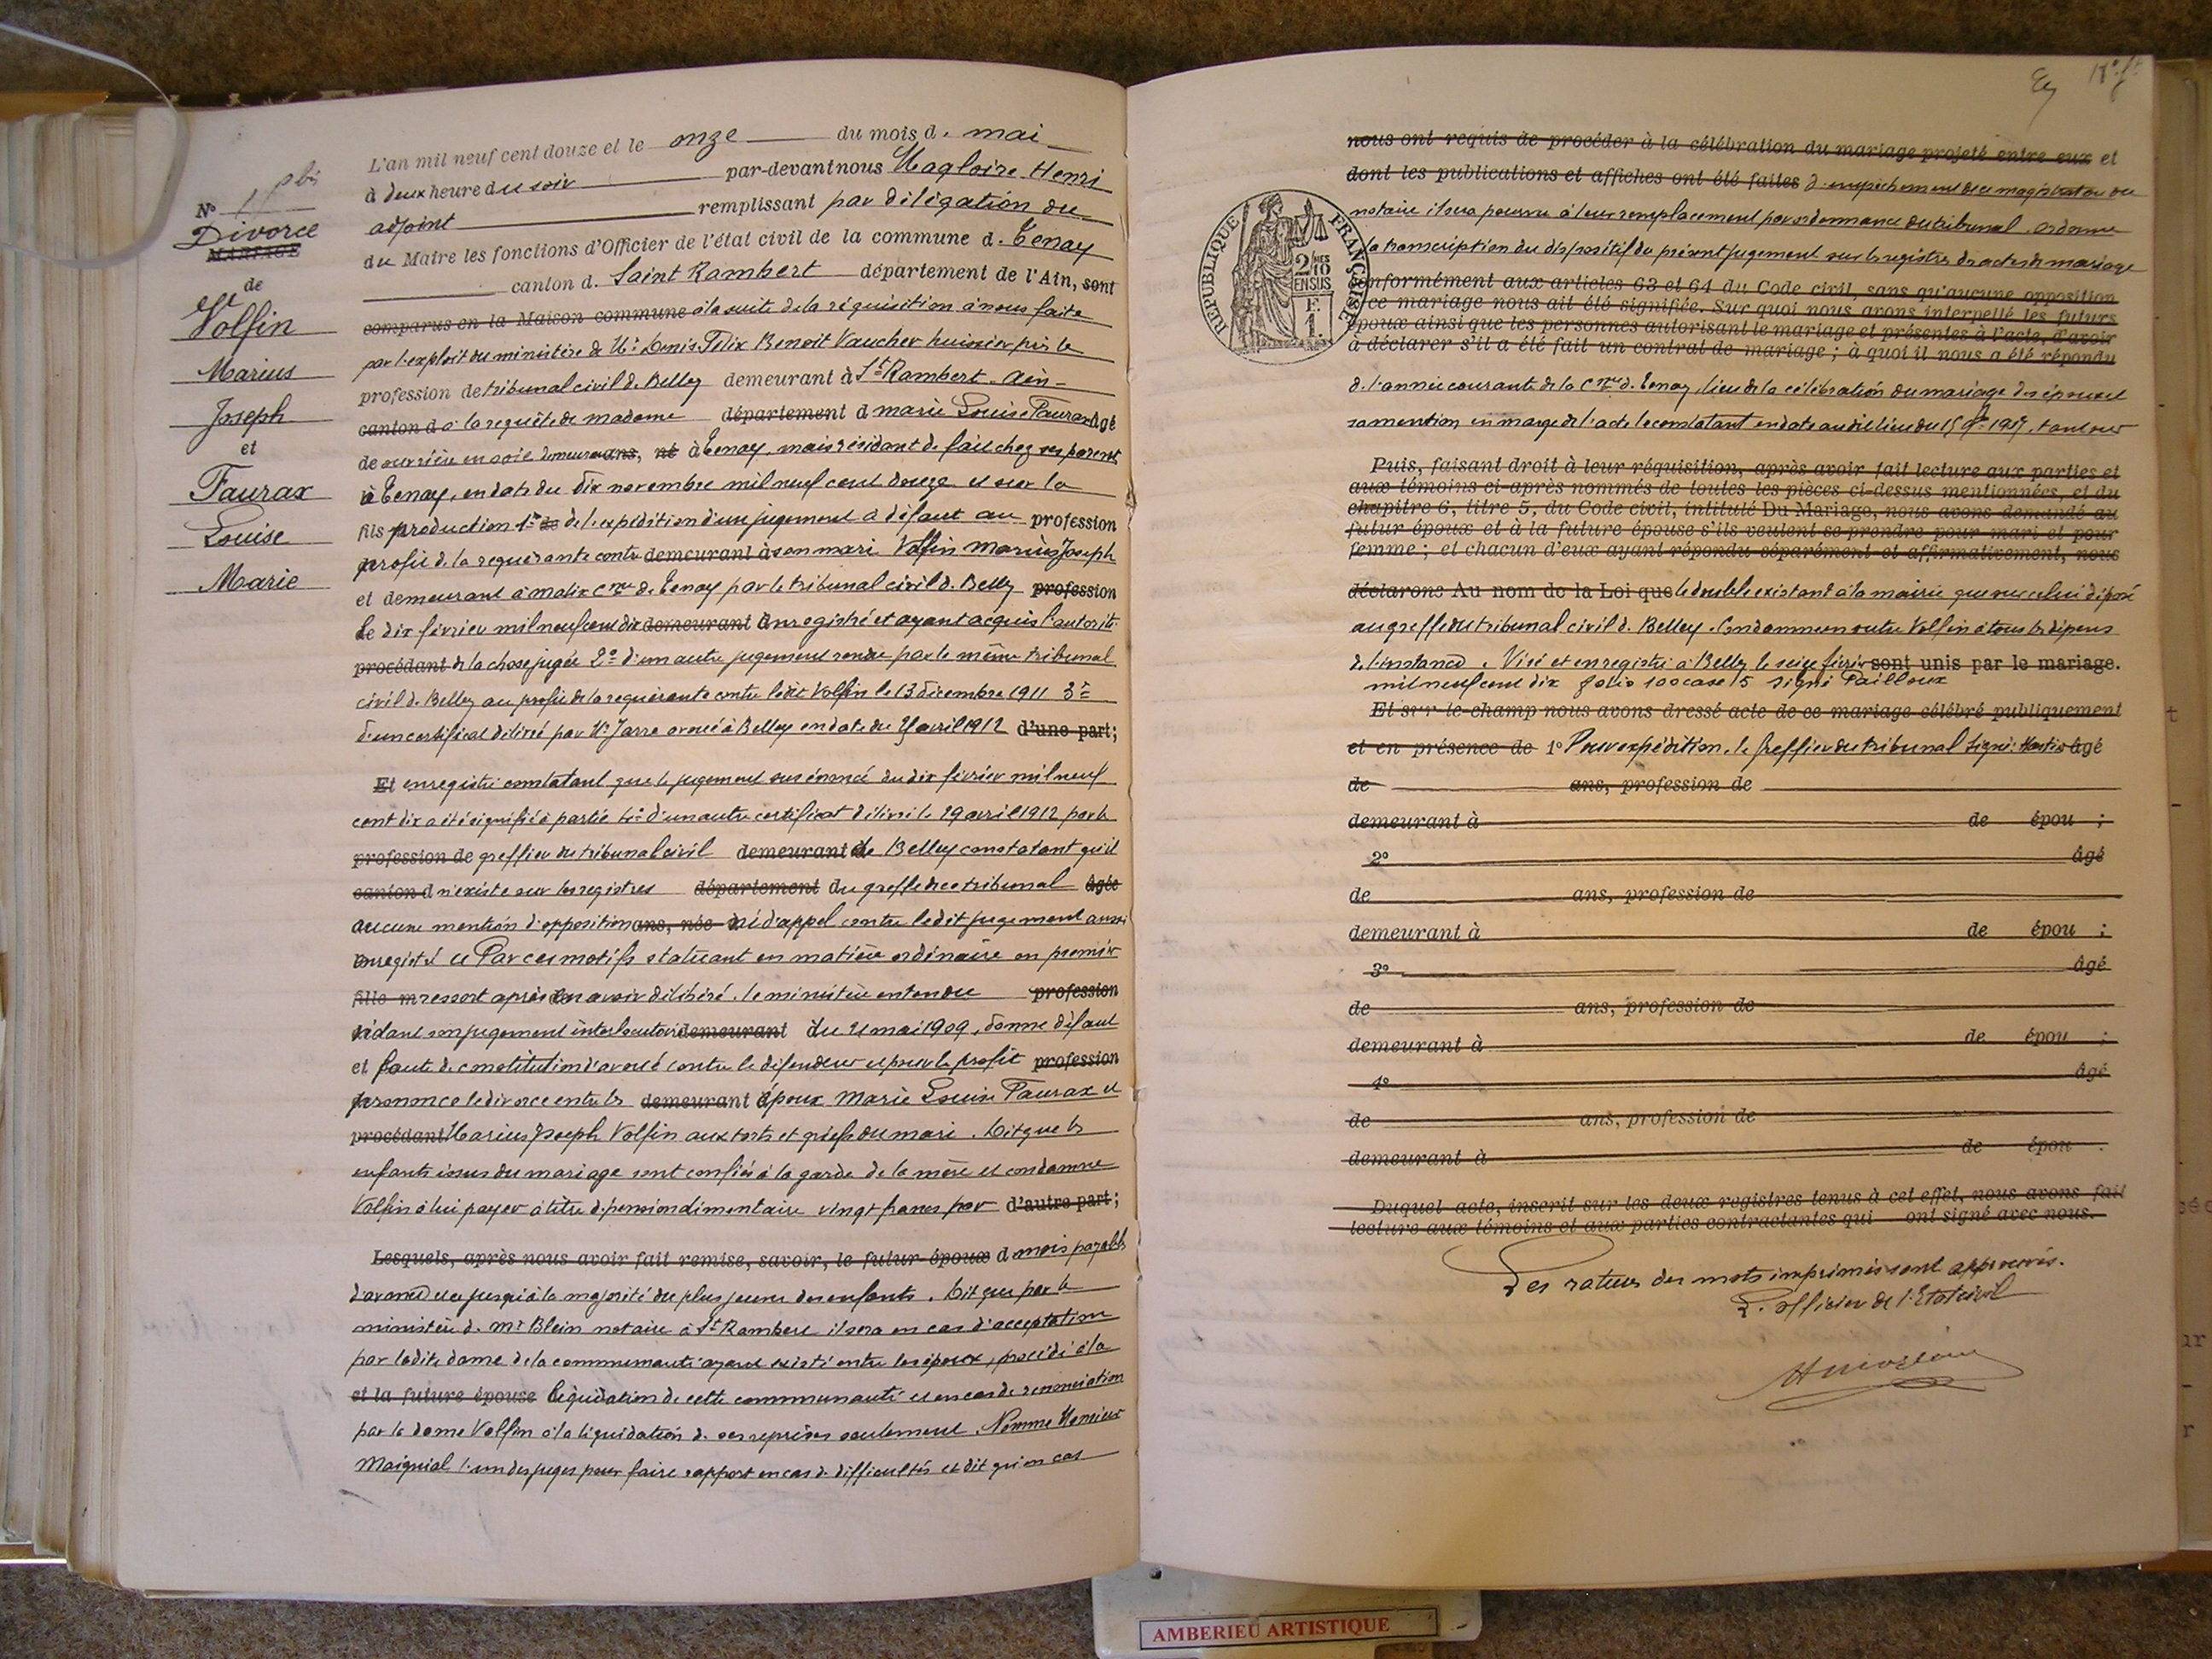 L'an mil neuf cent douze et le onze du mois d. mai
à deux heure du soir par-devant nous Magloire Henri
adjoint remplissant par délégation du
du Maire les fonctions d'Officier de l'état civil de la commune d. Tenay
canton d. Saint Rambert département de l'Ain, sont
comparus en la Maison commune à la suite de la réquisition à nous faite
par l'exploit du ministère de Me Denis Félix Benoit Vaucher huissier près le
profession de tribunal civil de Belley demeurant à St Rambert - Ain -
canton d à la requête de madame département d marie Louise Faurax âgé
de ouvrière en soie demeurant ans, né à Tenay, mais résidant de fait chez ses parents
à Tenay, en date du dix novembre mil neuf cent douze et sur la
fils production 1° de de l'expédition d'un jugement à défaut au profession
profit de la requérante contre demeurant à son mari Volfin Marius Joseph
et demeurant à malix Cne de Tenay par le tribunal civil de Belley profession
le dix février mil neuf cent dix demeurant enregistré et ayant acquis l'autorité
procédant de la chose jugée 2° d'un autre jugement rendu par le même tribunal
civil de Belley au profit de la requérante contre ledit Volfin le 13 décembre 1911 3°
d'un certificat délivré par Me Jarre avoué à Belley en date du avril 1912 d'une part;
Et enregistré constatant que le jugement sus énoncé du dix février mil neuf
cent dix a été signifié à partie 4° d'un autre certificat délivré le 29 avril 1912 par le
profession de greffier du tribunal civil demeurant de Belley constatant qu'il
canton d n'existe sur les registres département du greffe dudit tribunal âgée
aucune mention d'opposition ans, née ni d'appel contre ledit jugement aussi
enregistré Par ces motifs statuant en matière ordinaire en premier
fille m ressort après en avoir délibéré. le ministère entendu profession
vidant son jugement interlocutoire demeurant du 21 mai 1909, donne défaut
et faute de constitution d'avoué contre le défendeur et pour le profit profession
prononce le divorce entre les demeurant époux Marie Louise Faurax et
procédant Marius Joseph Volfin aux torts et griefs du mari. Dit que les
enfants issus du mariage sont confiés à la garde de la mère et condamne
Volfin à lui payer à titre de pension alimentaire vingt francs par d'autre part;
Lesquels, après nous avoir fait remise, savoir, le futur époux d mois payable
d'avance et ce jusqu'à la majorité du plus jeune des enfants. Dit que par le
ministère de Mr Blein notaire à St Rambert il sera en cas d'acceptation
par ladite dame de la communauté ayant existé entre les époux, procédé à la
et la future épouse liquidation de cette communauté et en cas de renonciation
par la dame Volfin à la liquidation de ses reprises seulement. Nomme Monsieur
Maiguial l'un des juges pour faire rapport en cas de difficultés et dit qu'en cas
N° bis
Divorce
MARIAGE
de
Volfin
Marius
Joseph
et
Faurax
Louise
Marie
nous ont requis de procéder à la célébration du mariage projeté entre eux et
dont les publications et affiches ont été faites d'empêchement du magistrat ou du
notaire il sera pourvu à leur remplacement par ordonnance du tribunal. ordonne
la transcription du dispositif du présent jugement sur les registres des actes de mariage
RÉPUBLIQUE FRANÇAISE
2/10 EN SUS
F. 1.
conformément aux articles 63 et 64 du Code civil, sans qu'aucune opposition
ce mariage nous ait été signifiée. Sur quoi nous avons interpellé les futurs
époux ainsi que les personnes autorisant le mariage et présentes à l'acte, d'avoir
à déclarer s'il a été fait un contrat de mariage ; à quoi il nous a été répondu
de l'année courante de la Cne de Tenay, lieu de la célébration du mariage des époux et
sa mention en marge de l'acte le constatant en date audit lieu du tant sur
Puis, faisant droit à leur réquisition, après avoir fait lecture aux parties et
aux témoins ci-après nommés de toutes les pièces ci-dessus mentionnées, et du
chapitre 6, titre 5, du Code civil, intitulé Du Mariage, nous avons demandé au
futur époux et à la future épouse s'ils veulent se prendre pour mari et pour
femme ; et chacun d'eux ayant répondu séparément et affirmativement, nous
déclarons Au nom de la Loi que le double existant à la mairie que sur celui déposé
au greffe du tribunal civil de Belley. Condamne en outre Volfin à tous les dépens
de l'instance. Visé et enregistré à Belley le seize février sont unis par le mariage.
mil neuf cent dix folio 100 case 15 signé Pailloux
Et sur-le-champ nous avons dressé acte de ce mariage célébré publiquement
et en présence de 1° Pour expédition, le greffier du tribunal signé: âgé
de ans, profession de
demeurant à de épou ;
2° âgé
de ans, profession de
demeurant à de épou ;
3° âgé
de ans, profession de
demeurant à de épou ;
4° âgé
de ans, profession de
demeurant à de épou .
Duquel acte, inscrit sur les deux registres tenus à cet effet, nous avons fait
lecture aux témoins et aux parties contractantes qui ont signé avec nous.
Les ratures des mots imprimés sont approuvés.
L'officier de l'Etat civil
AMBERIEU ARTISTIQUE